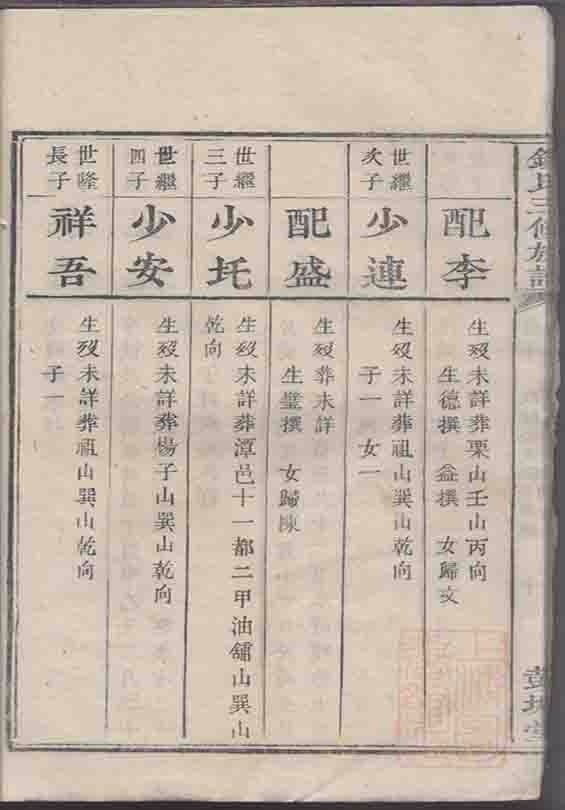 三修族譜
配李
生殁未詳葬栗山壬山丙向
生德撰 益撰 女歸文
世繼次子
少連
生殁未詳葬祖山巽山乾向
子一 女一
配盛
生殁葬未詳
生璧撰 女歸陳
世繼三子
少圫
生殁未詳葬潭邑十一都二甲油舖山巽山
乾向
世繼四子
少安
生殁未詳葬楊子山巽山乾向
世隆長子
祥吾
生殁未詳葬祖山巽山乾向
子一